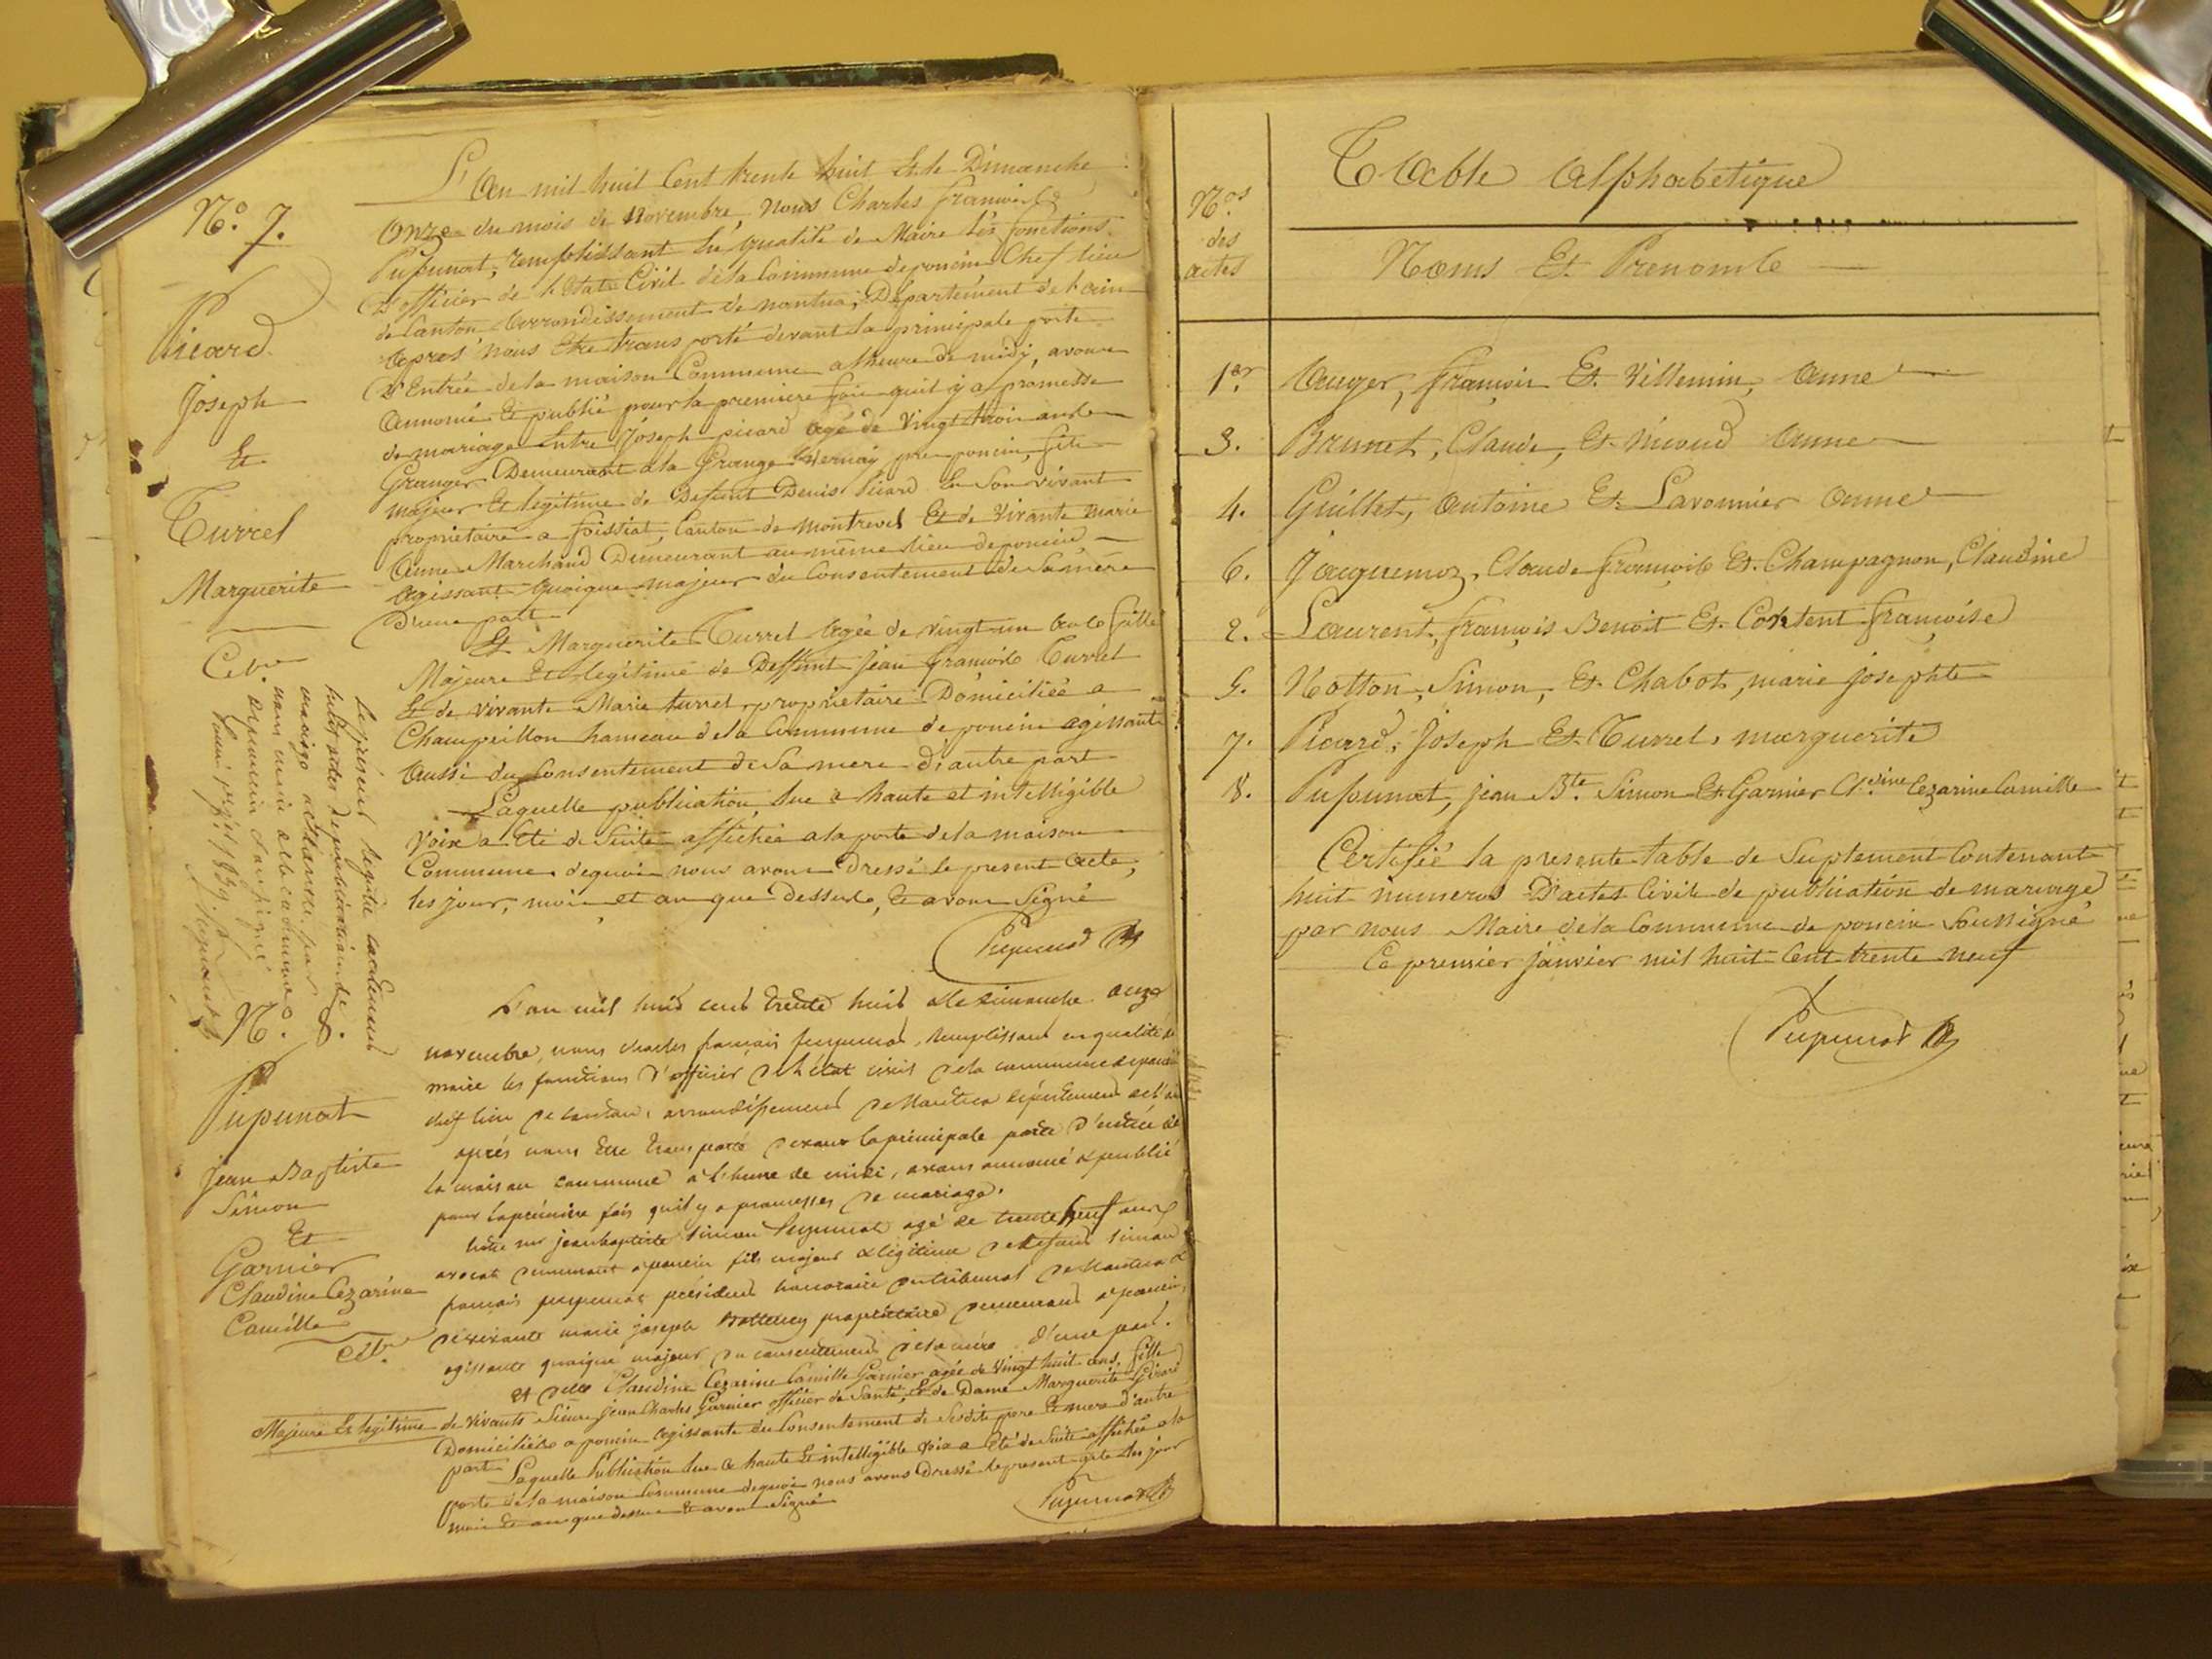 N.º 7.
Picard
Joseph
Et
Turrel
Marguerite
Cel.on
L'an mil huit Cent trente huit Et le Dimanche
Onze du mois de Novembre, Nous Charles François
Pupunat, remplissant En qualité de Maire les fonctions
D'officier de l'Etat Civil de la Commune de poncin Chef lieu
de Canton Arrondissement de nantua, Département de l'ain
Après nous Etre transporté devant la principale porte
D'Entrée de la maison Commune a lheure de midy, avons
Annoncé Et publié pour la premiere fois quil y a promesse
de mariage Entre Joseph picard Agé de Vingt trois ans
Granger Demeurant a la Grange Vernay pres poncin, fils
majeur Et legitime de Defunt Denis Picard En Son vivant
propriétaire a foissiat, Canton de Montrevel Et de Vivante Marie
Anne Marchand Demeurant au même lieu de poncin
Agissant quoique majeur du Consentement de Sa mère
D'une part
Et Marguerite Turrel Agée de vingt un ans fille
Majeure Et legitime de Deffunt Jean François Turrel
Et de vivante Marie turrel propriétaire Domiciliée a
Champeillon hameau de la Commune de poncin agissante
Aussi du Consentement de Sa mere D'autre part
Laquelle publication lue a haute et intelligible
Voix a Eté de Suite affichée a la porte de la maison
Commune, de quoi nous avons Dressé le present Acte,
les jour, mois et an que Dessus, Et avons Signé
Pupunat
Le présent registre
publications de
mariage
nous maire de la commune
de poncin soussigné
1839
Pupunat
N.º 8.
Pupunat
Jean Baptiste
Simon
Et
Garnier
Claudine Cezarine
Camille
L'an mil huit cent trente huit & le dimanche onze
novembre, nous charles françois pupunat, remplissant en qualité de
maire les fonctions d'officier de l'état civil de la commune de poncin
chef lieu de canton, arrondissement de Nantua département de l'ain
après nous être transporté devant la principale porte d'entrée de
la maison commune à l'heure de midi, avons annoncé & publié
pour la première fois qu'il y a promesses de mariage.
Entre mr jean baptiste simon Pupunat agé de trente neuf ans
avocat demeurant a poncin fils majeur & légitime de défunt simon
françois pupunat président honoraire du tribunal de Nantua &
de vivante marie joseph propriétaire demeurant a poncin,
agissant quoique majeur du consentement de sa mère d'une part.
Et Claudine Cezarine Camille Garnier agée de Vingt huit ans, fille
Majeure Et legitime de vivants Sieur Jean Charles Garnier officier de Santé, Et de Dame Marguerite
Domiciliés a poncin agissante du Consentement de Sesdits pere Et mere d'autre
part Laquelle Publication lue a haute Et intelligible Voix a Eté de Suite affichée a la
porte de la maison Commune de quoi nous avons Dressé le present acte les jour
mois Et an que dessus Et avons Signé
Pupunat
Table Alphabétique
N.os
des
actes
Noms Et Prenoms
1er. Auger, françois Et Villemin, Anne
3. Brunet, Claude, Et Nicoud Anne
4. Guillet, Antoine Et Lavonnier Anne
6. Jacquemoz, Claude françois Et Champagnon, Claudine
2. Laurent, françois Benoit Et Contant françoise
5. Notton, Simon, Et Chabot, marie josephte
7. Picard, Joseph Et Turrel, marguerite
8. Pupunat, jean B.te Simon Et Garnier Cl.dine Cezarine Camille
Certifié la presente table de Suplement Contenant
huit numeros D'actes Civils de publication de mariage
par nous Maire de la Commune de poncin Soussigné
Ce premier janvier mil huit Cent trente neuf
Pupunat